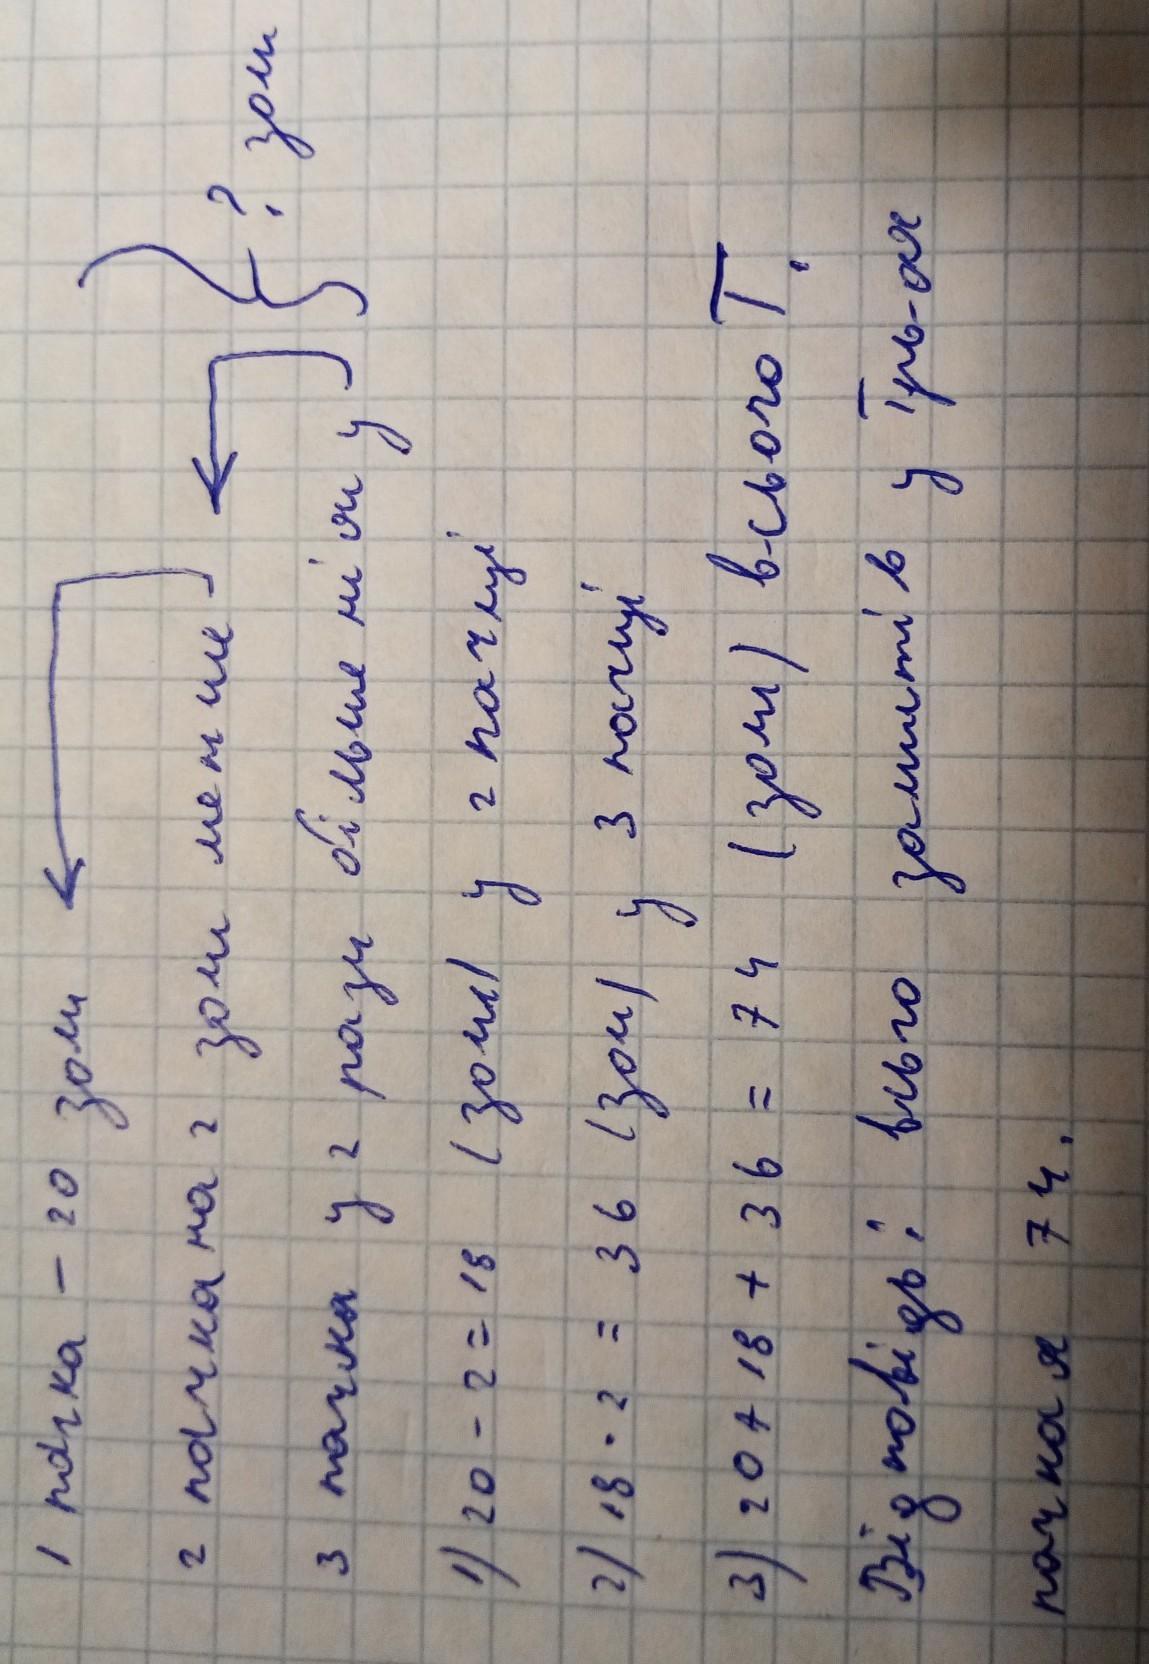 1 пачка - 20 зош
2 пачка на 2 зош менше -
? зош
3 пачка у 2 рази більше ніж у
1) 20 - 2 = 18 (зош) у 2 пачці
2) 18 · 2 = 36 (зош) у 3 пачці
3) 20 + 18 + 36 = 74 (зош) всього
Відповідь: всьго зошитів у трь-ох
пачках 74.